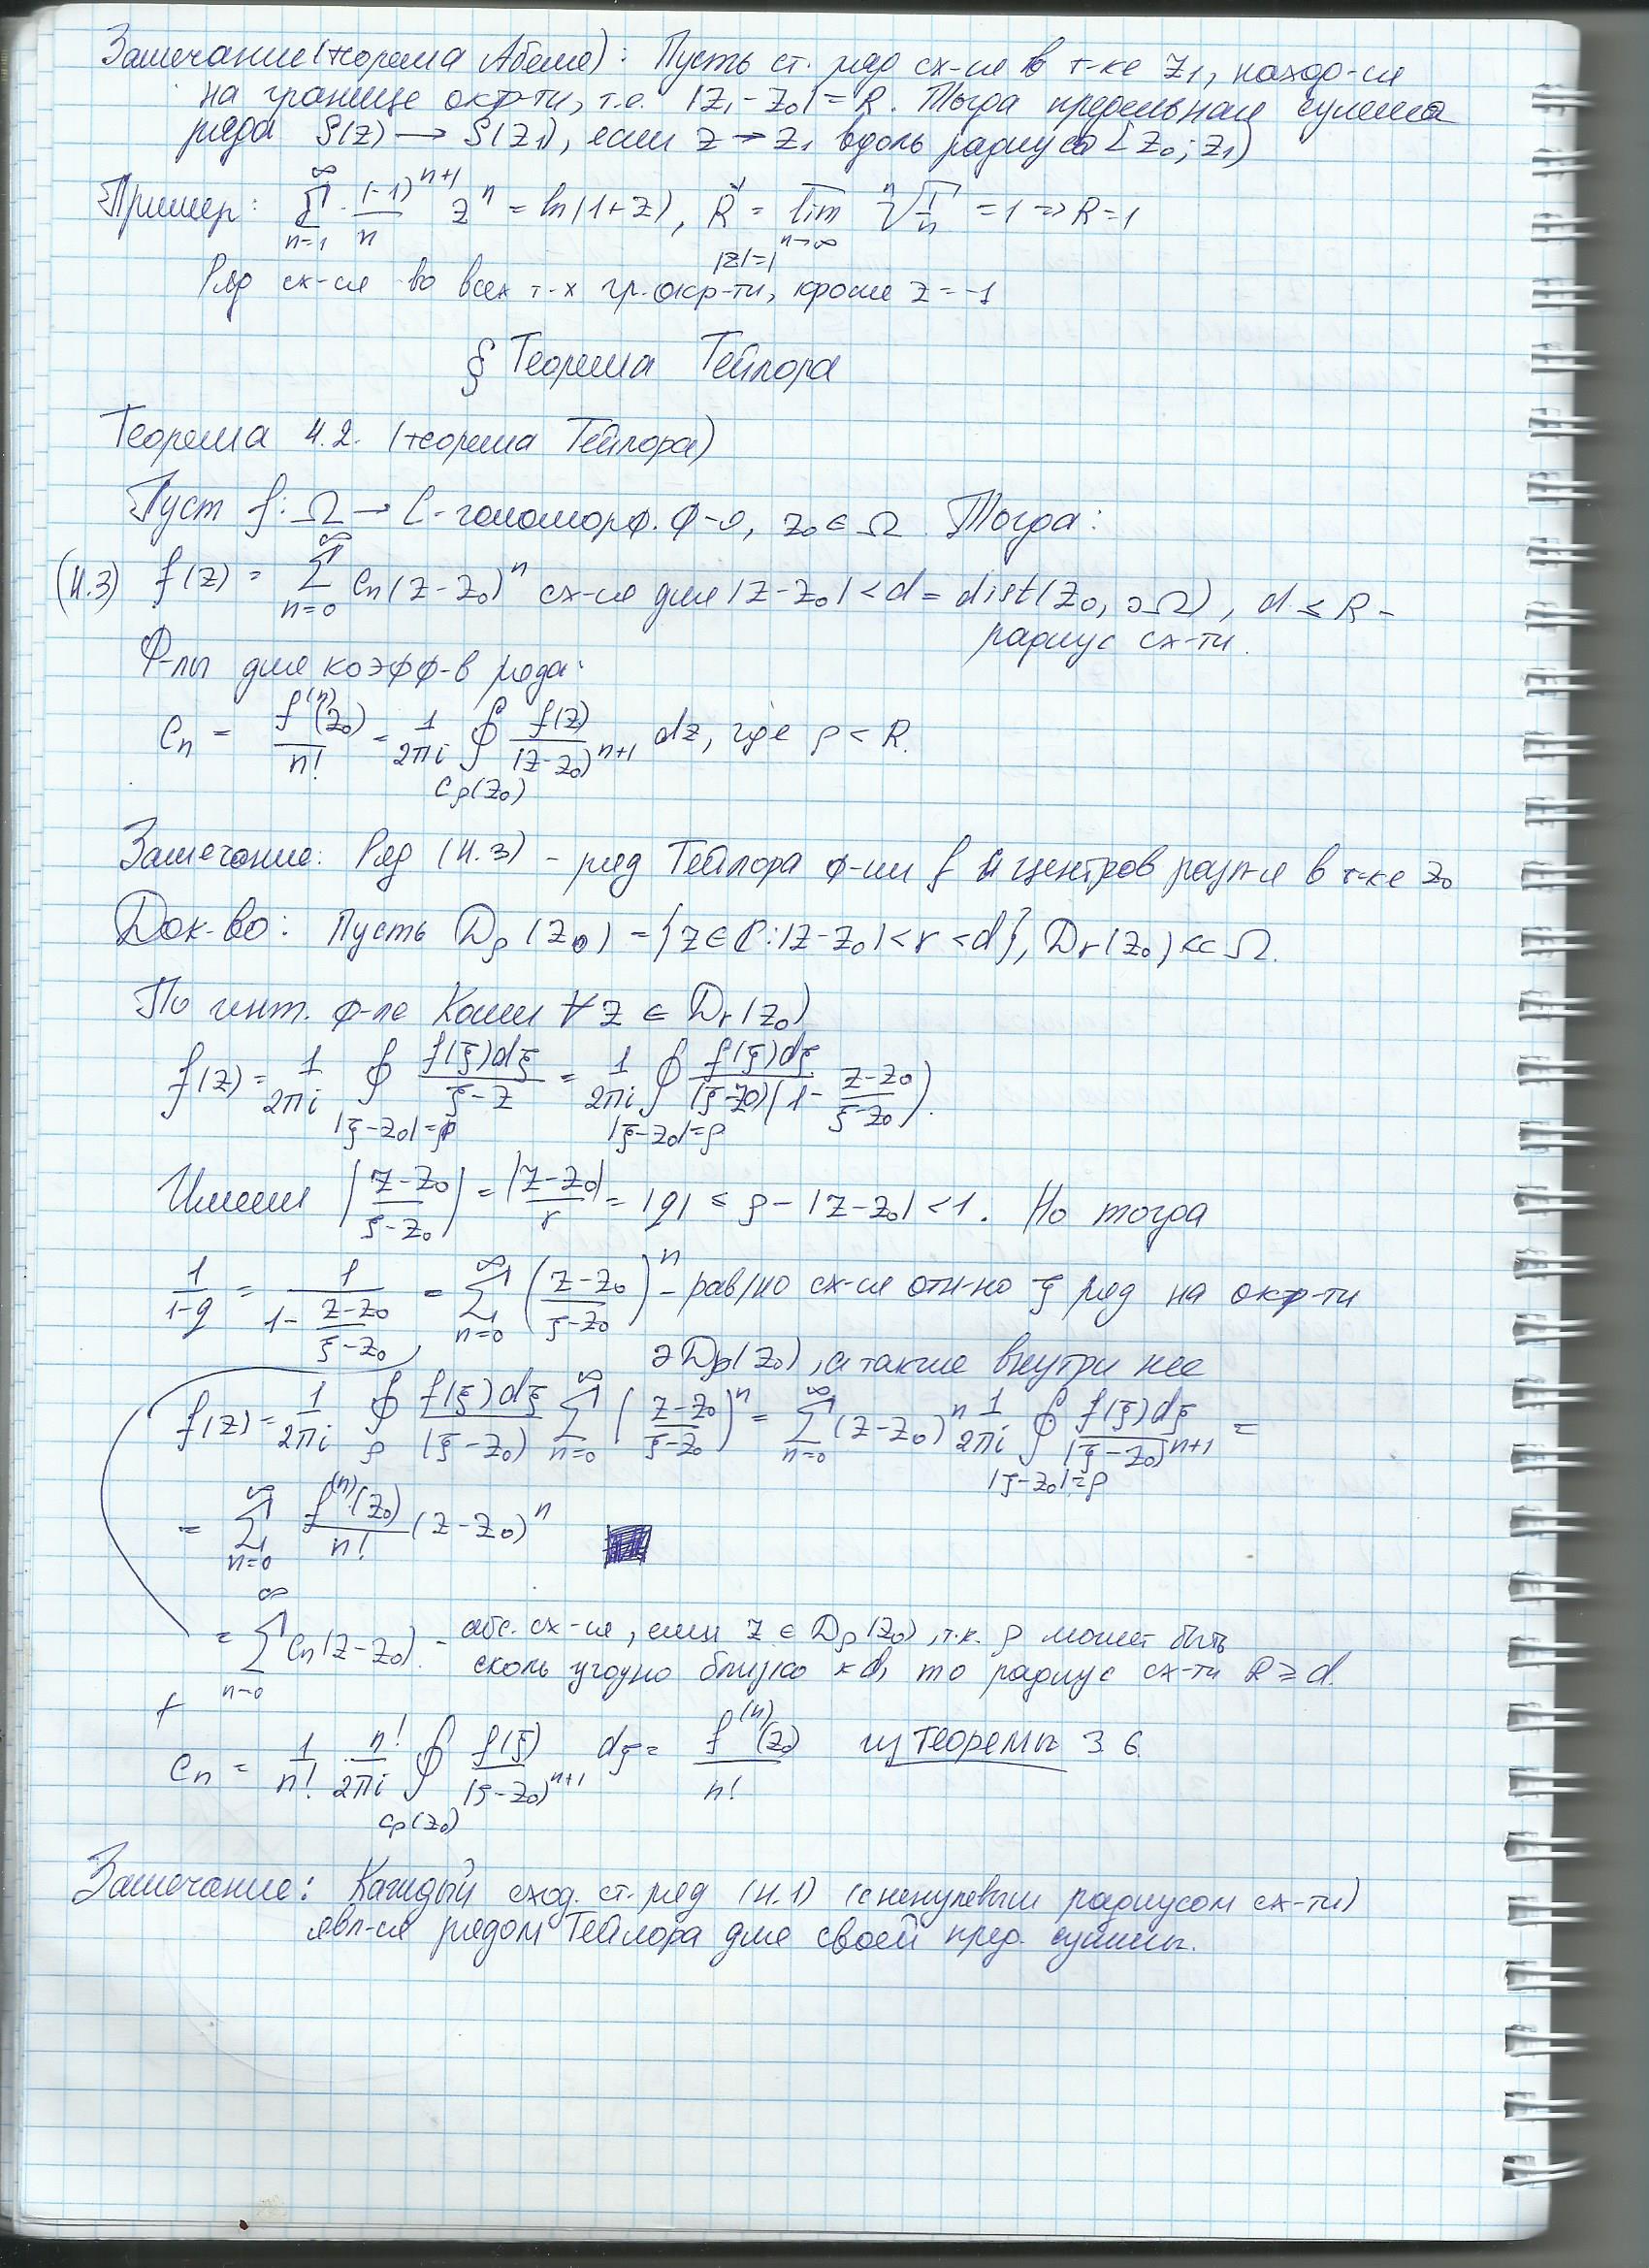 Замечание (теорема Абеля): Пусть ст. ряд сх-ся в т-ке z₁, наход-ся
на границе окр-ти, т.е. |z₁ - z₀| = R. Тогда предельная сумма
ряда S(z) → S(z₁), если z → z₁ вдоль радиуса [z₀; z₁)
Пример: ∑_{n=1}^{∞} (-1)^{n+1}/n zⁿ = ln(1+z), R^{-1} = \overline{lim}_{n→∞} ⁿ√(1/n) = 1 => R = 1
|z|=1
Ряд сх-ся во всех т-х гр. окр-ти, кроме z = -1
§ Теорема Тейлора
Теорема 4.2. (теорема Тейлора)
Пуст f: Ω → C - голоморф. ф-я, z₀ ∈ Ω. Тогда:
(4.3) f(z) = ∑_{n=0}^{∞} cₙ(z - z₀)ⁿ сх-ся для |z - z₀| < d = dist(z₀, ∂Ω), d ≤ R -
радиус сх-ти.
Ф-лы для коэфф-в ряда:
cₙ = f^{(n)}(z₀)/n! = 1/2πi ∮_{C_ρ(z₀)} f(z)/(z-z₀)^{n+1} dz, где ρ < R.
Замечание: Ряд (4.3) - ряд Тейлора ф-ии f центров в т-ке z₀
Док-во: Пусть D_ρ(z₀) = {z ∈ C: |z - z₀| < r < d}, D_r(z₀) ⊂⊂ Ω.
По инт. ф-ле Коши ∀ z ∈ D_r(z₀)
f(z) = 1/2πi ∮_{|ξ-z₀|=ρ} f(ξ)dξ/(ξ - z) = 1/2πi ∮_{|ξ-z₀|=ρ} f(ξ)dξ/((ξ-z₀)(1 - (z-z₀)/(ξ-z₀))).
Имеем |(z-z₀)/(ξ-z₀)| = |z-z₀|/r = |q| ≤ ρ - |z-z₀| < 1. Но тогда
1/(1-q) = 1/(1 - (z-z₀)/(ξ-z₀)) = ∑_{n=0}^{∞} ((z-z₀)/(ξ-z₀))ⁿ - рав/но сх-ся отн-но ξ ряд на окр-ти
∂D_ρ(z₀), а также внутри нее
f(z) = 1/2πi ∮_ρ f(ξ)dξ/(ξ-z₀) ∑_{n=0}^{∞} ((z-z₀)/(ξ-z₀))ⁿ = ∑_{n=0}^{∞} (z-z₀)ⁿ 1/2πi ∮_{|ξ-z₀|=ρ} f(ξ)dξ/(ξ-z₀)^{n+1} =
= ∑_{n=0}^{∞} f^{(n)}(z₀)/n! (z-z₀)ⁿ
= ∑_{n=0}^{∞} cₙ(z-z₀). - абс. сх-ся, если z ∈ D_ρ(z₀), т.к. ρ может быть
сколь угодно близко к d, то радиус сх-ти R ≥ d.
cₙ = 1/n! · n!/2πi ∮_{C_ρ(z₀)} f(ξ)/(ξ-z₀)^{n+1} dξ = f^{(n)}(z₀)/n! из теоремы 3.6.
Замечание: Каждый сход. ст. ряд (4.1) (с ненулевым радиусом сх-ти)
явл-ся рядом Тейлора для своей пред. суммы.